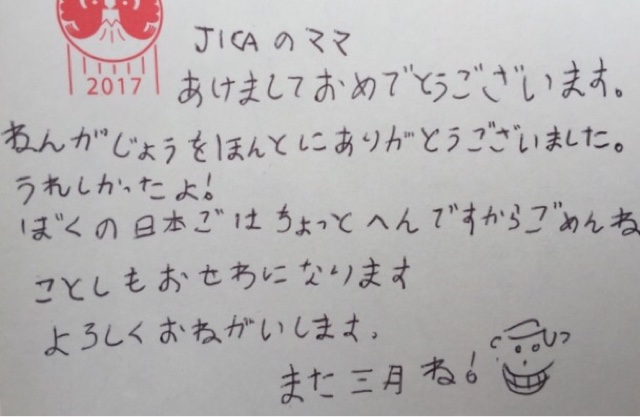 2017
JICAのママ
あけましておめでとうございます。
ねんがじょうをほんとにありがとうございました。
うれしかったよ!
ぼくの日本ごはちょっとへんですからごめんね
ことしもおせわになります
よろしくおねがいします。
また三月ね!